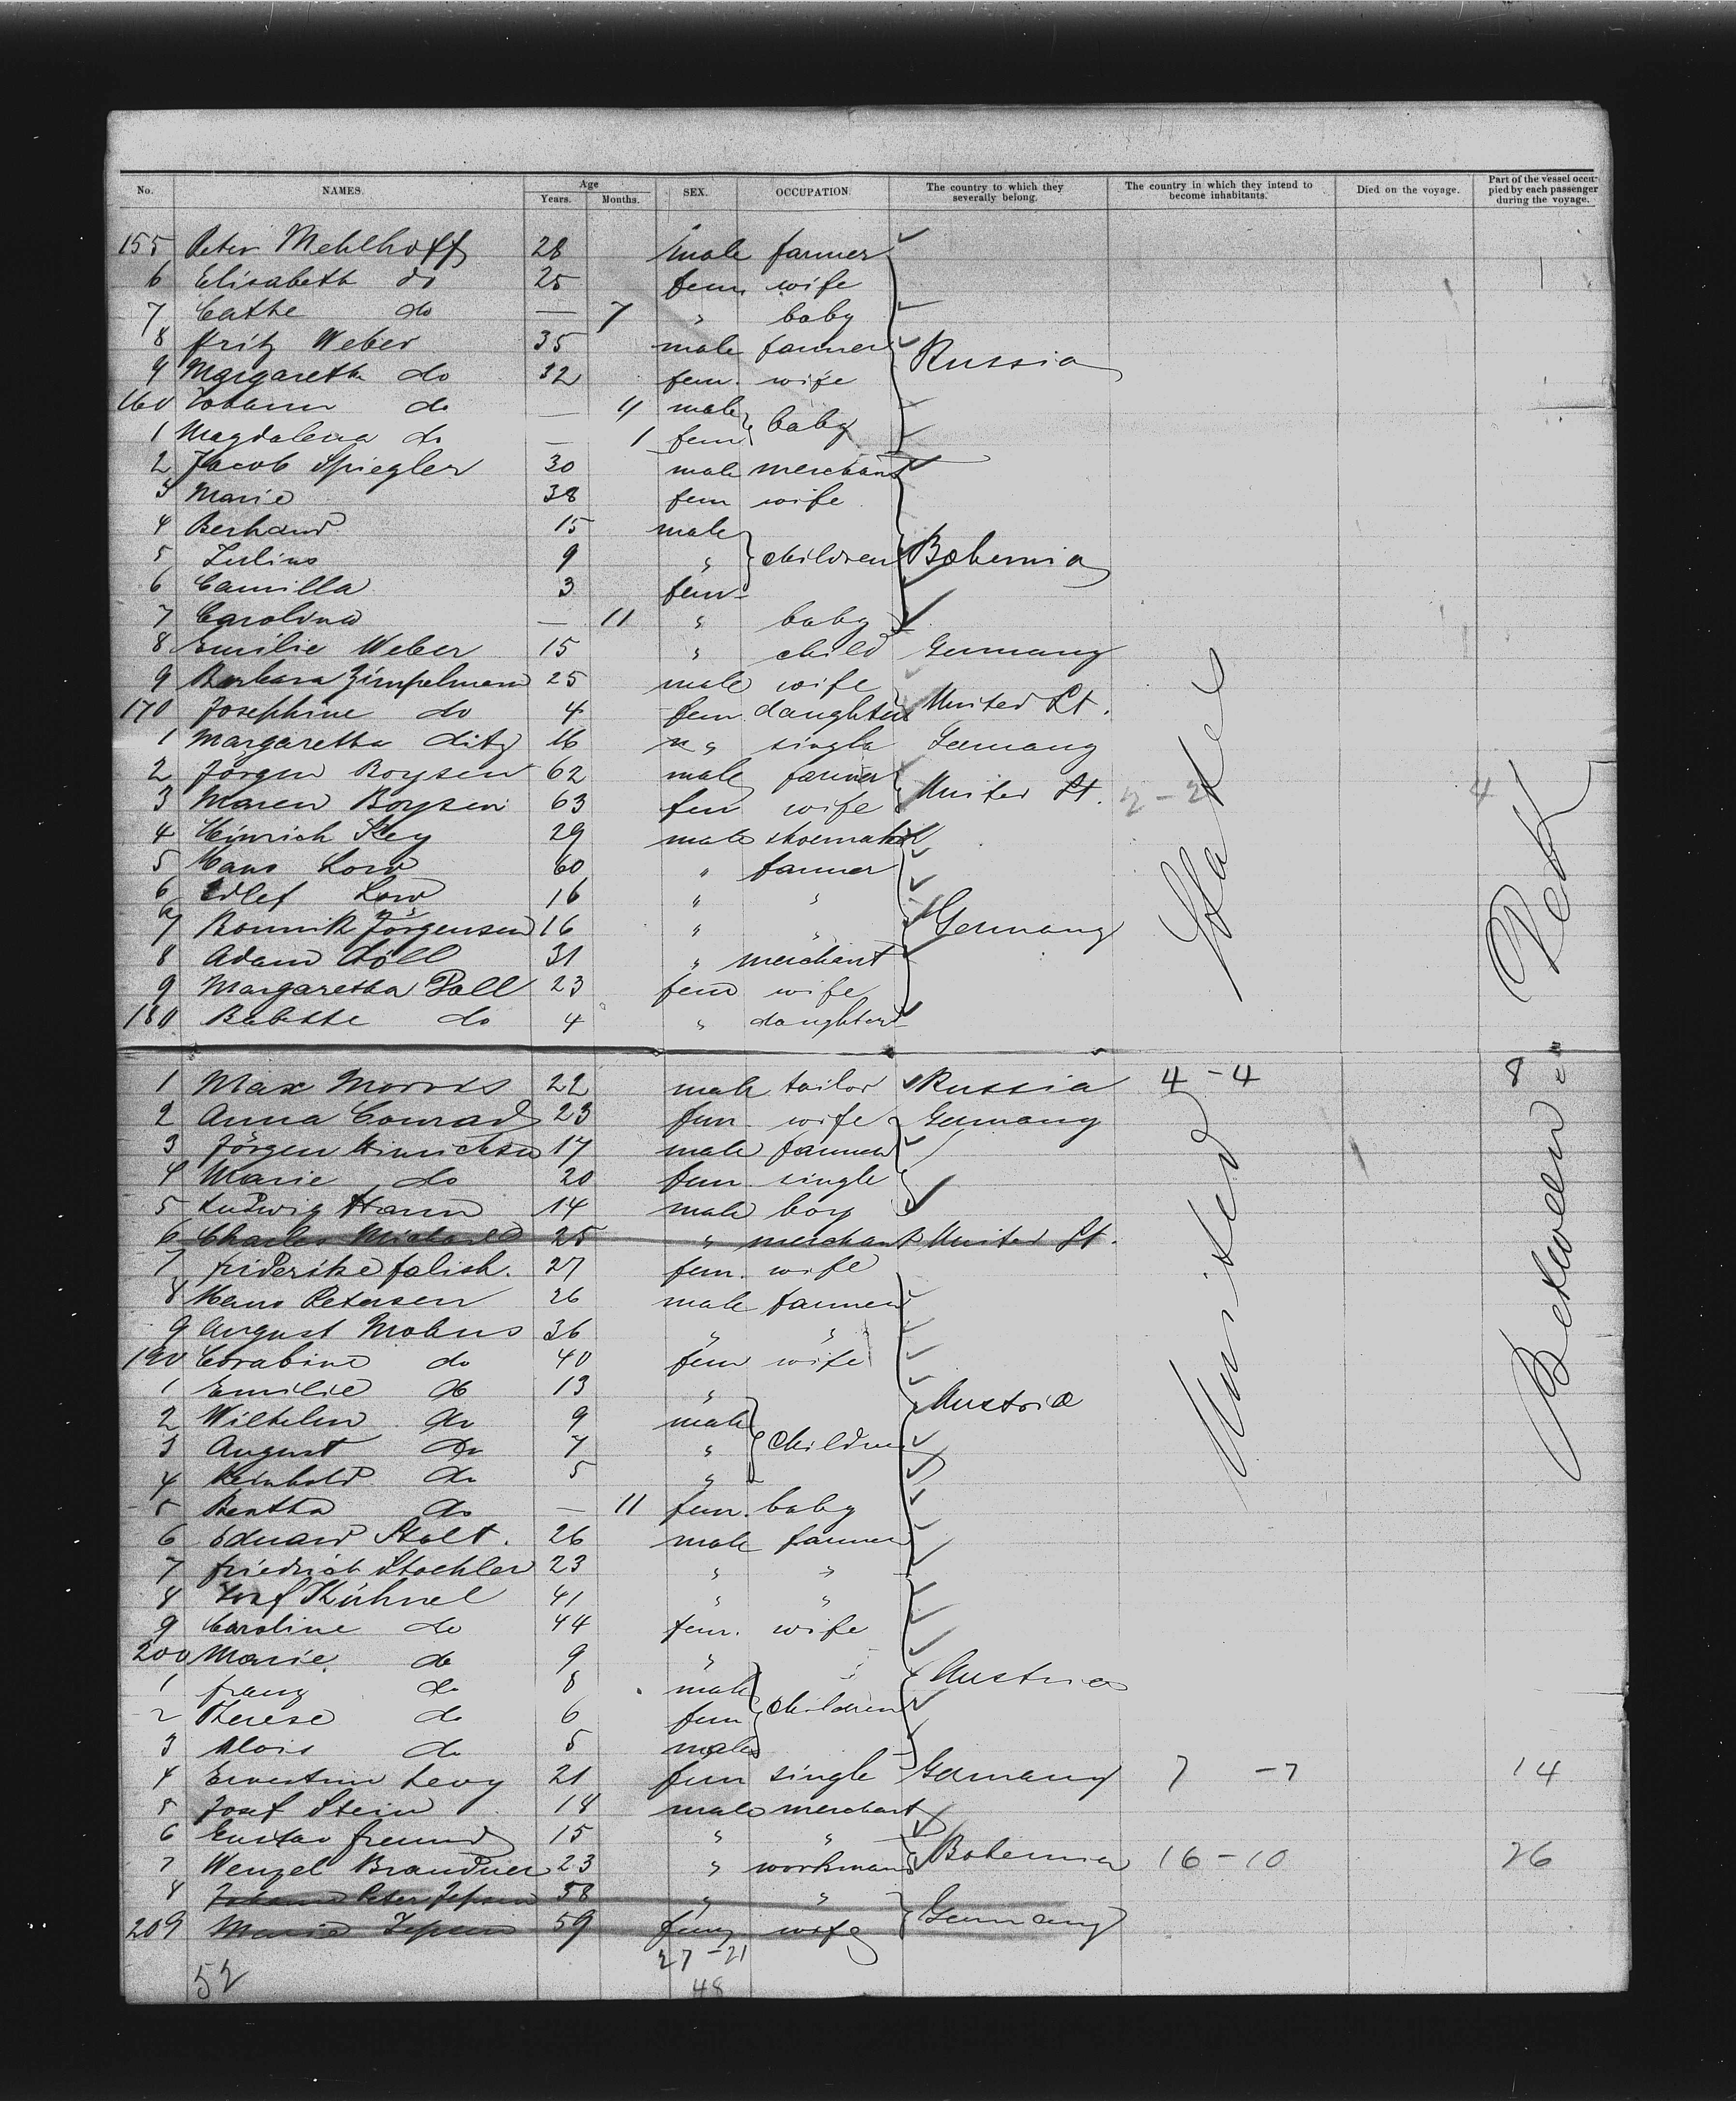 No. NAMES. Age Years. Months. SEX. OCCUPATION. The country to which they severally belong. The country in which they intend to become inhabitants. Died on the voyage. Part of the vessel occupied by each passenger during the voyage.
155 Peter Mehlhoff 28 male farmer
6 Elisabeth do 25 fem. wife
7 Cathe do — 7 " baby
8 Fritz Weber 35 male farmer Russia
9 Margareth do 32 fem. wife
160 Johann do — 4 male baby
1 Magdalena do — 1 fem
2 Jacob Spiegler 30 male merchant
3 Marie 38 fem wife
4 Berhard 15 male
5 Julius 9 " children Bohemia
6 Camilla 3 fem
7 Carolina — 11 " baby
8 Emilie Weber 15 " child Germany
9 Barbara Zimpelmann 25 male wife
170 Josephine do 4 fem daughter United St.
1 Margaretha ditz 16 " single Germany
2 Jörgen Boysen 62 male farmer
3 Maren Boysen 63 fem wife United St. 2-2 4
4 Heinrich Key 29 male shoemaker
5 Hans Lord 60 " farmer
6 Edlef Lord 16 " "
7 Bonnik Jörgensen 16 " " Germany
8 Adam Döll 31 " merchant
9 Margaretha Döll 23 fem wife
180 Babette do 4 " daughter
1 Max 22 male tailor Russia 4-4 8
2 Anna Conrad 23 fem. wife Germany
3 Jörgen Hinrichsen 17 male farmer
4 Marie do 20 fem. single
5 Ludwig Hann 14 male boy
6 Charles 25 " merchant United St.
7 Friderike falish. 27 fem. wife
8 Hans Petersen 26 male farmer
9 August Mobus 36 " "
190 do 40 fem wife
1 Emilie do 13 " Austria
2 Wilhelm do 9 male
3 August do 7 " children
4 Reinhold do 5 "
5 Bertha do — 11 fem. baby
6 Eduard Stolt. 26 male farmer
7 Friedrich Stochler 23 " "
8 Josef Kühnel 41 " "
9 Caroline do 44 fem. wife
200 Marie do 9 " "
1 franz do 8 male Austria
2 Therese do 6 fem children
3 Alois do 5 male
4 Ernestine Levy 21 fem single Germany 7-7 14
5 Josef Stein 18 male merchant
6 Gustav freund 15 " "
7 Wenzel Brandner 23 " workman Bohemia 16-10 26
8 Peter Jepsen 58 " "
209 Maria Jepsen 59 fem wife Germany
27-21
52 48
United States
Between Deck